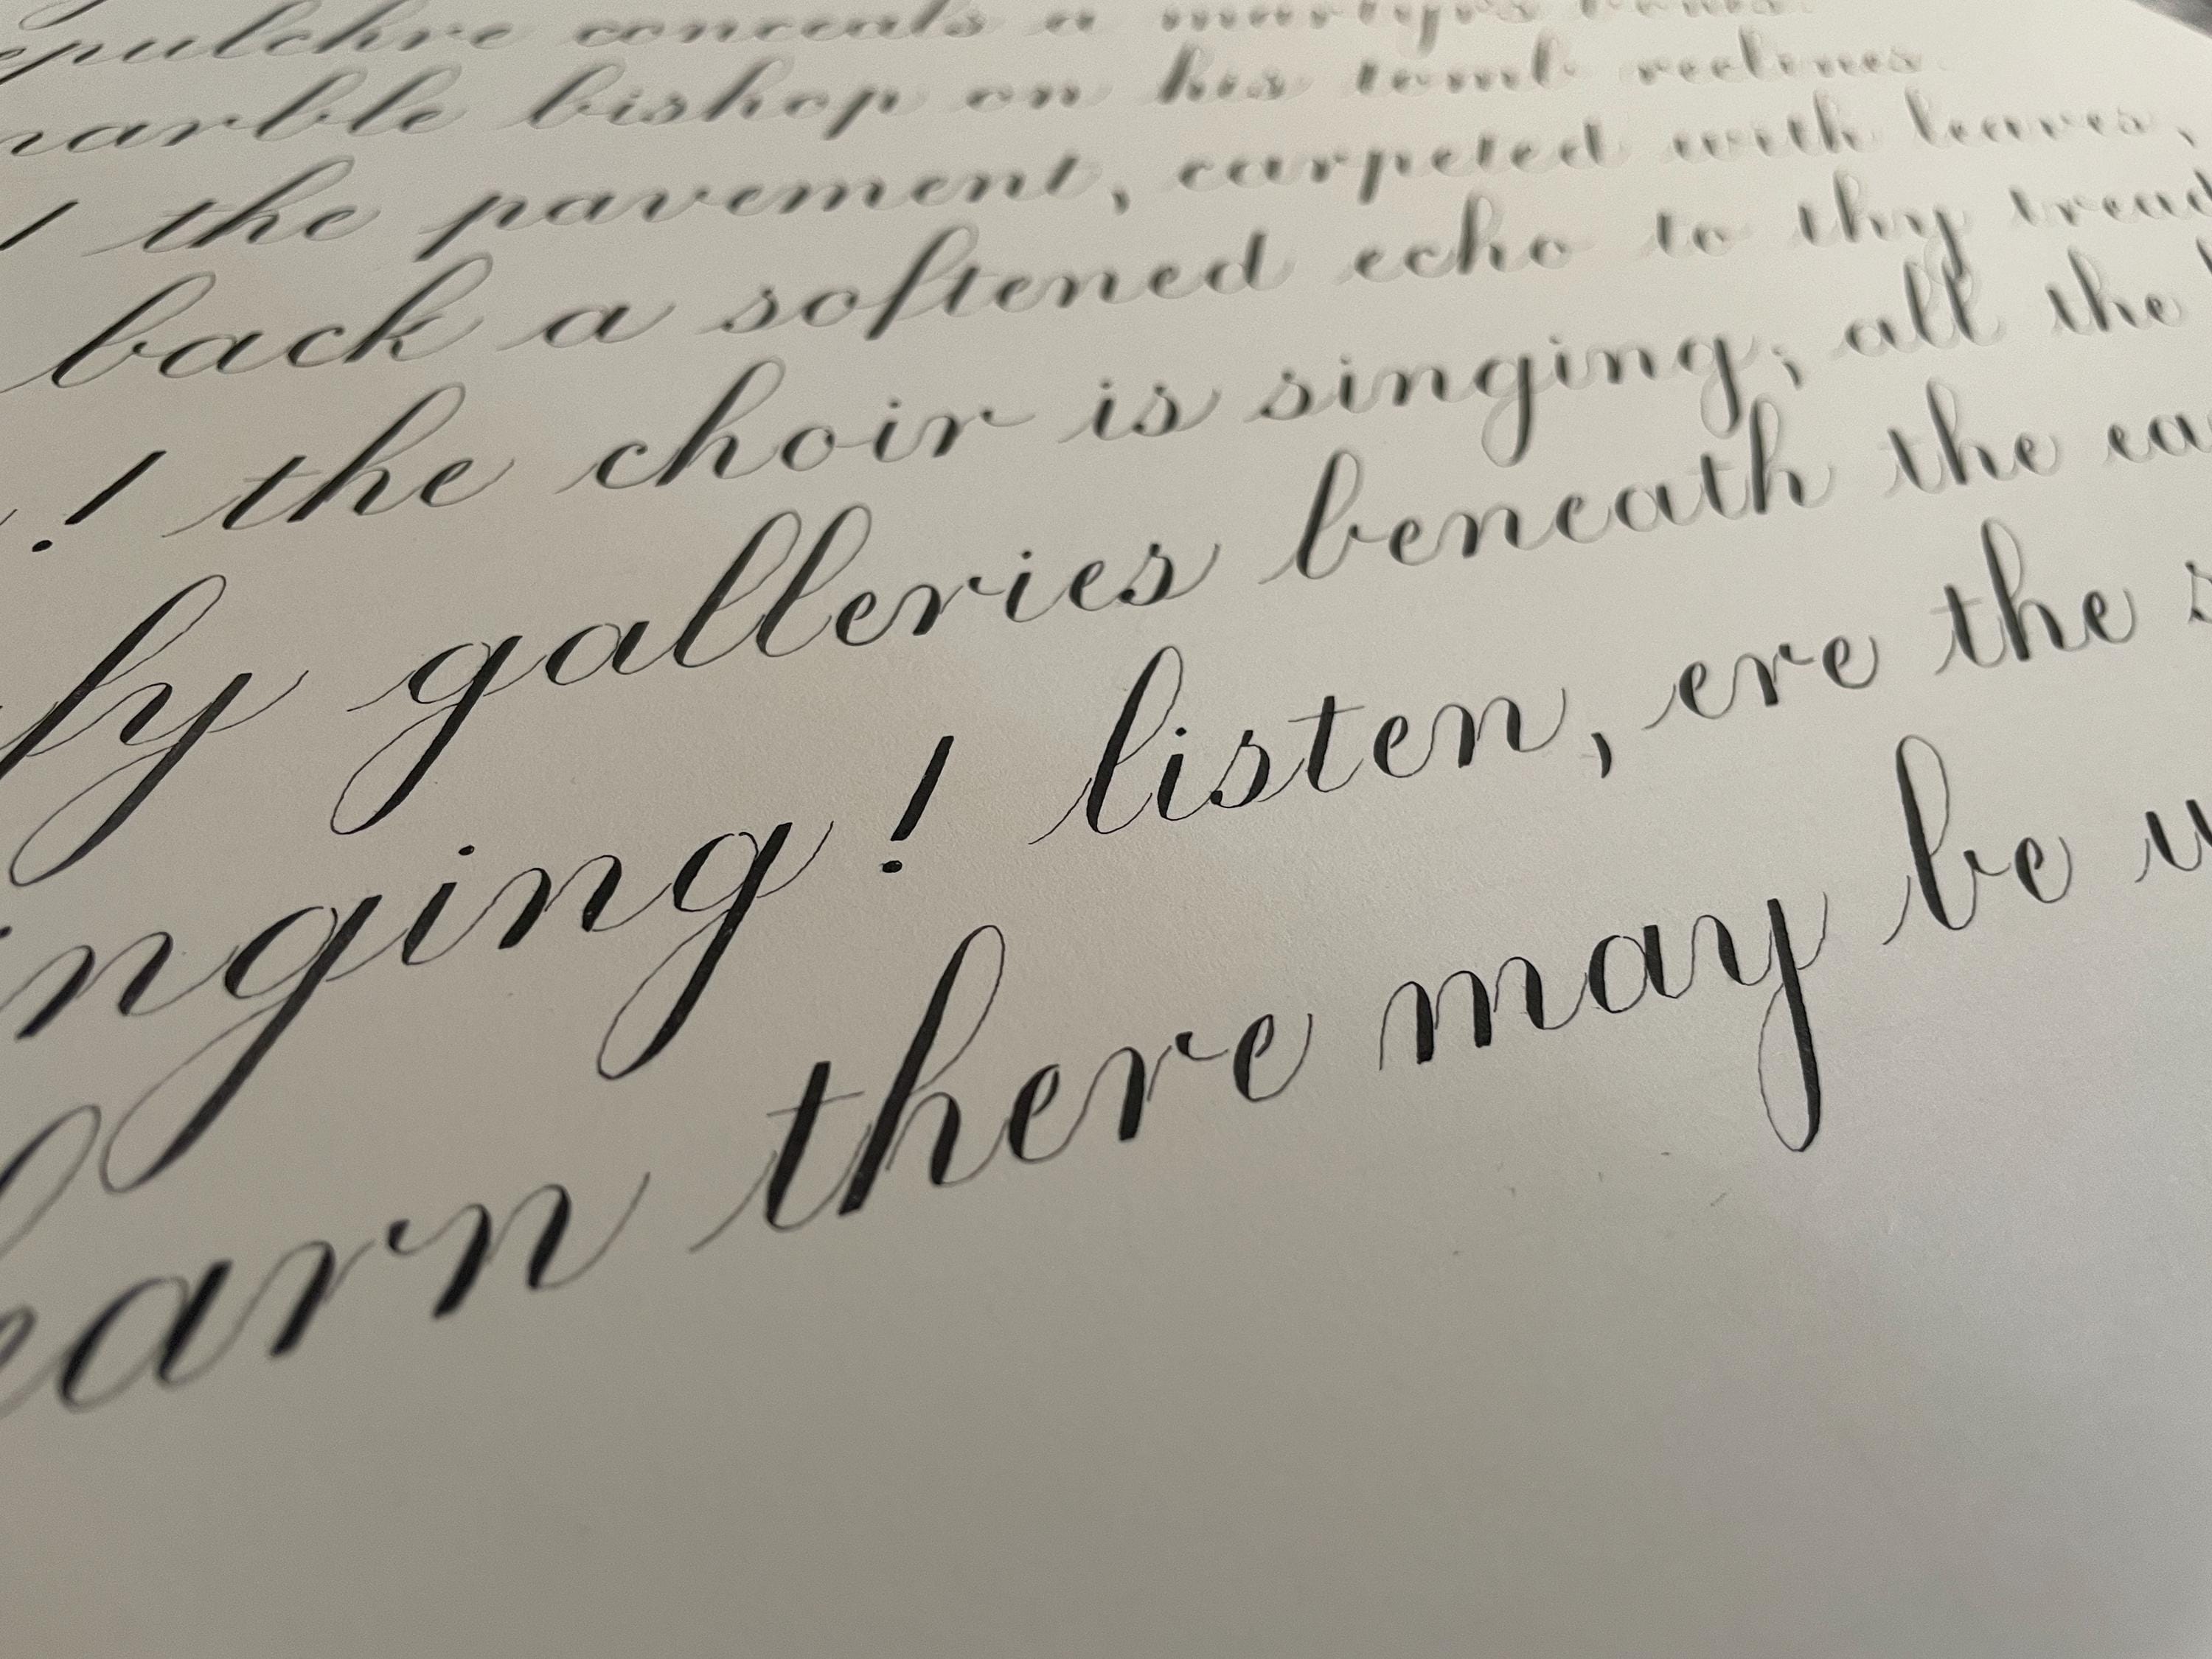 epulchre conceals a martyr's bones.
marble bishop on his tomb reclines.
the pavement, carpeted with leaves,
back a softened echo to thy tread
! the choir is singing; all the
fy galleries beneath the ea
nging! listen, ere the s
earn there may be w